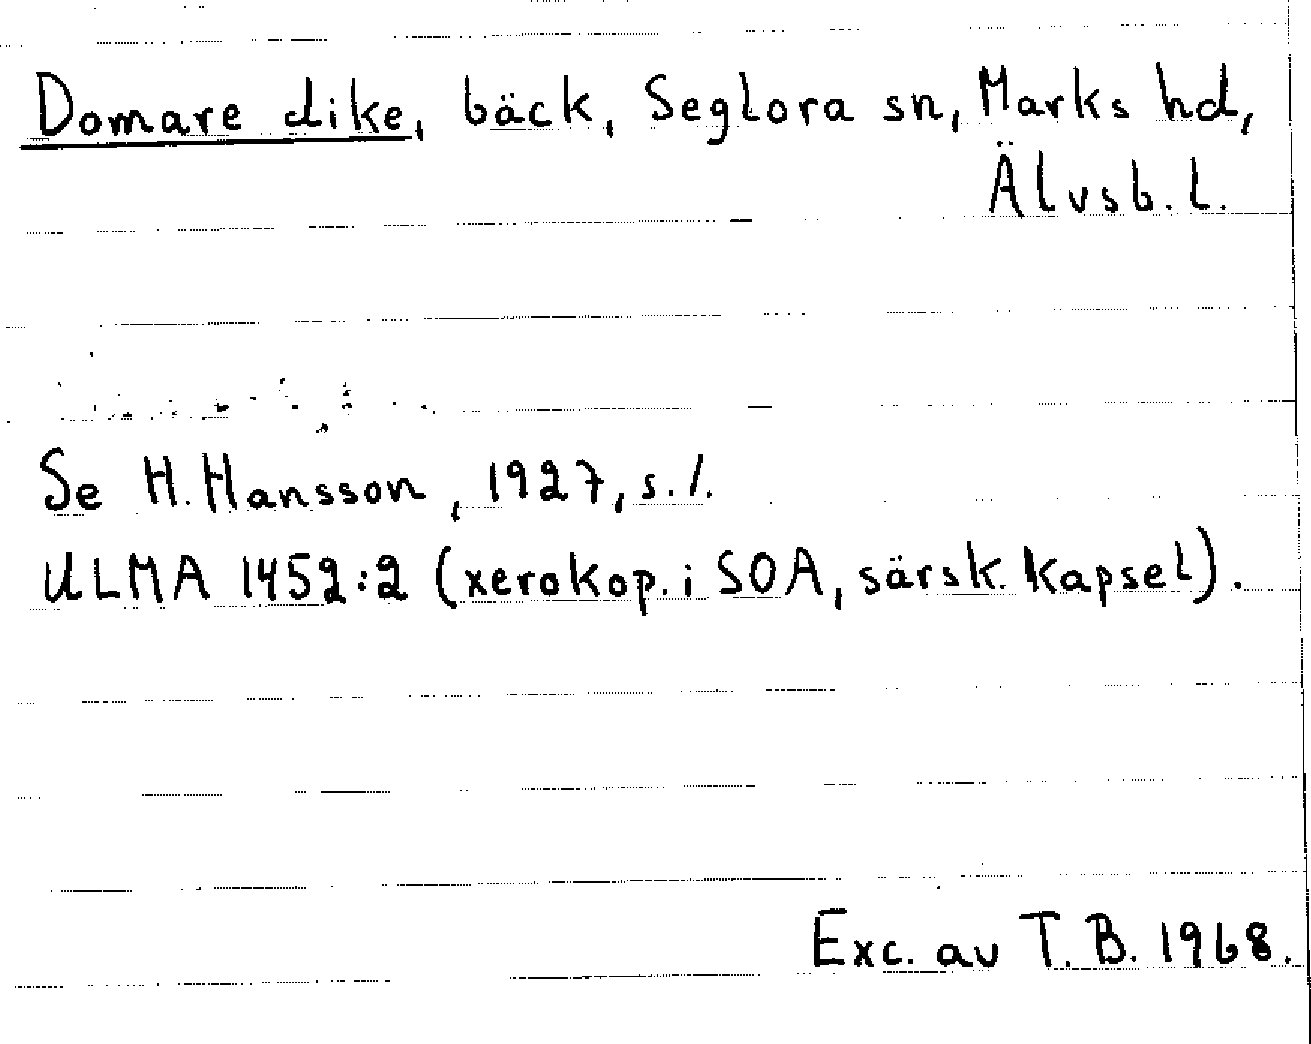 Domare dike, bäck, Seglora sn, Marks hd,
Älvsb. l.
Se H. Hansson, 1927, s. 1.
ULMA 1452:2 (xerokop. i SOA, särsk. kapsel).
Exc. av T. B. 1968.